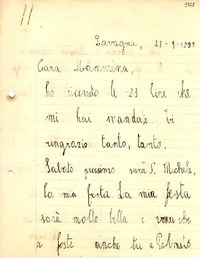 11
Lavagna, 21-9-1933
Cara Mammina,
ho ricevuto le 23 lire che
mi hai mandate. Ti
ringrazio tanto, tanto.
Sabato prossimo sarà S. Michele,
la mia festa. La mia festa
sarà molto bella e vorrei che
ci foste anche tu e